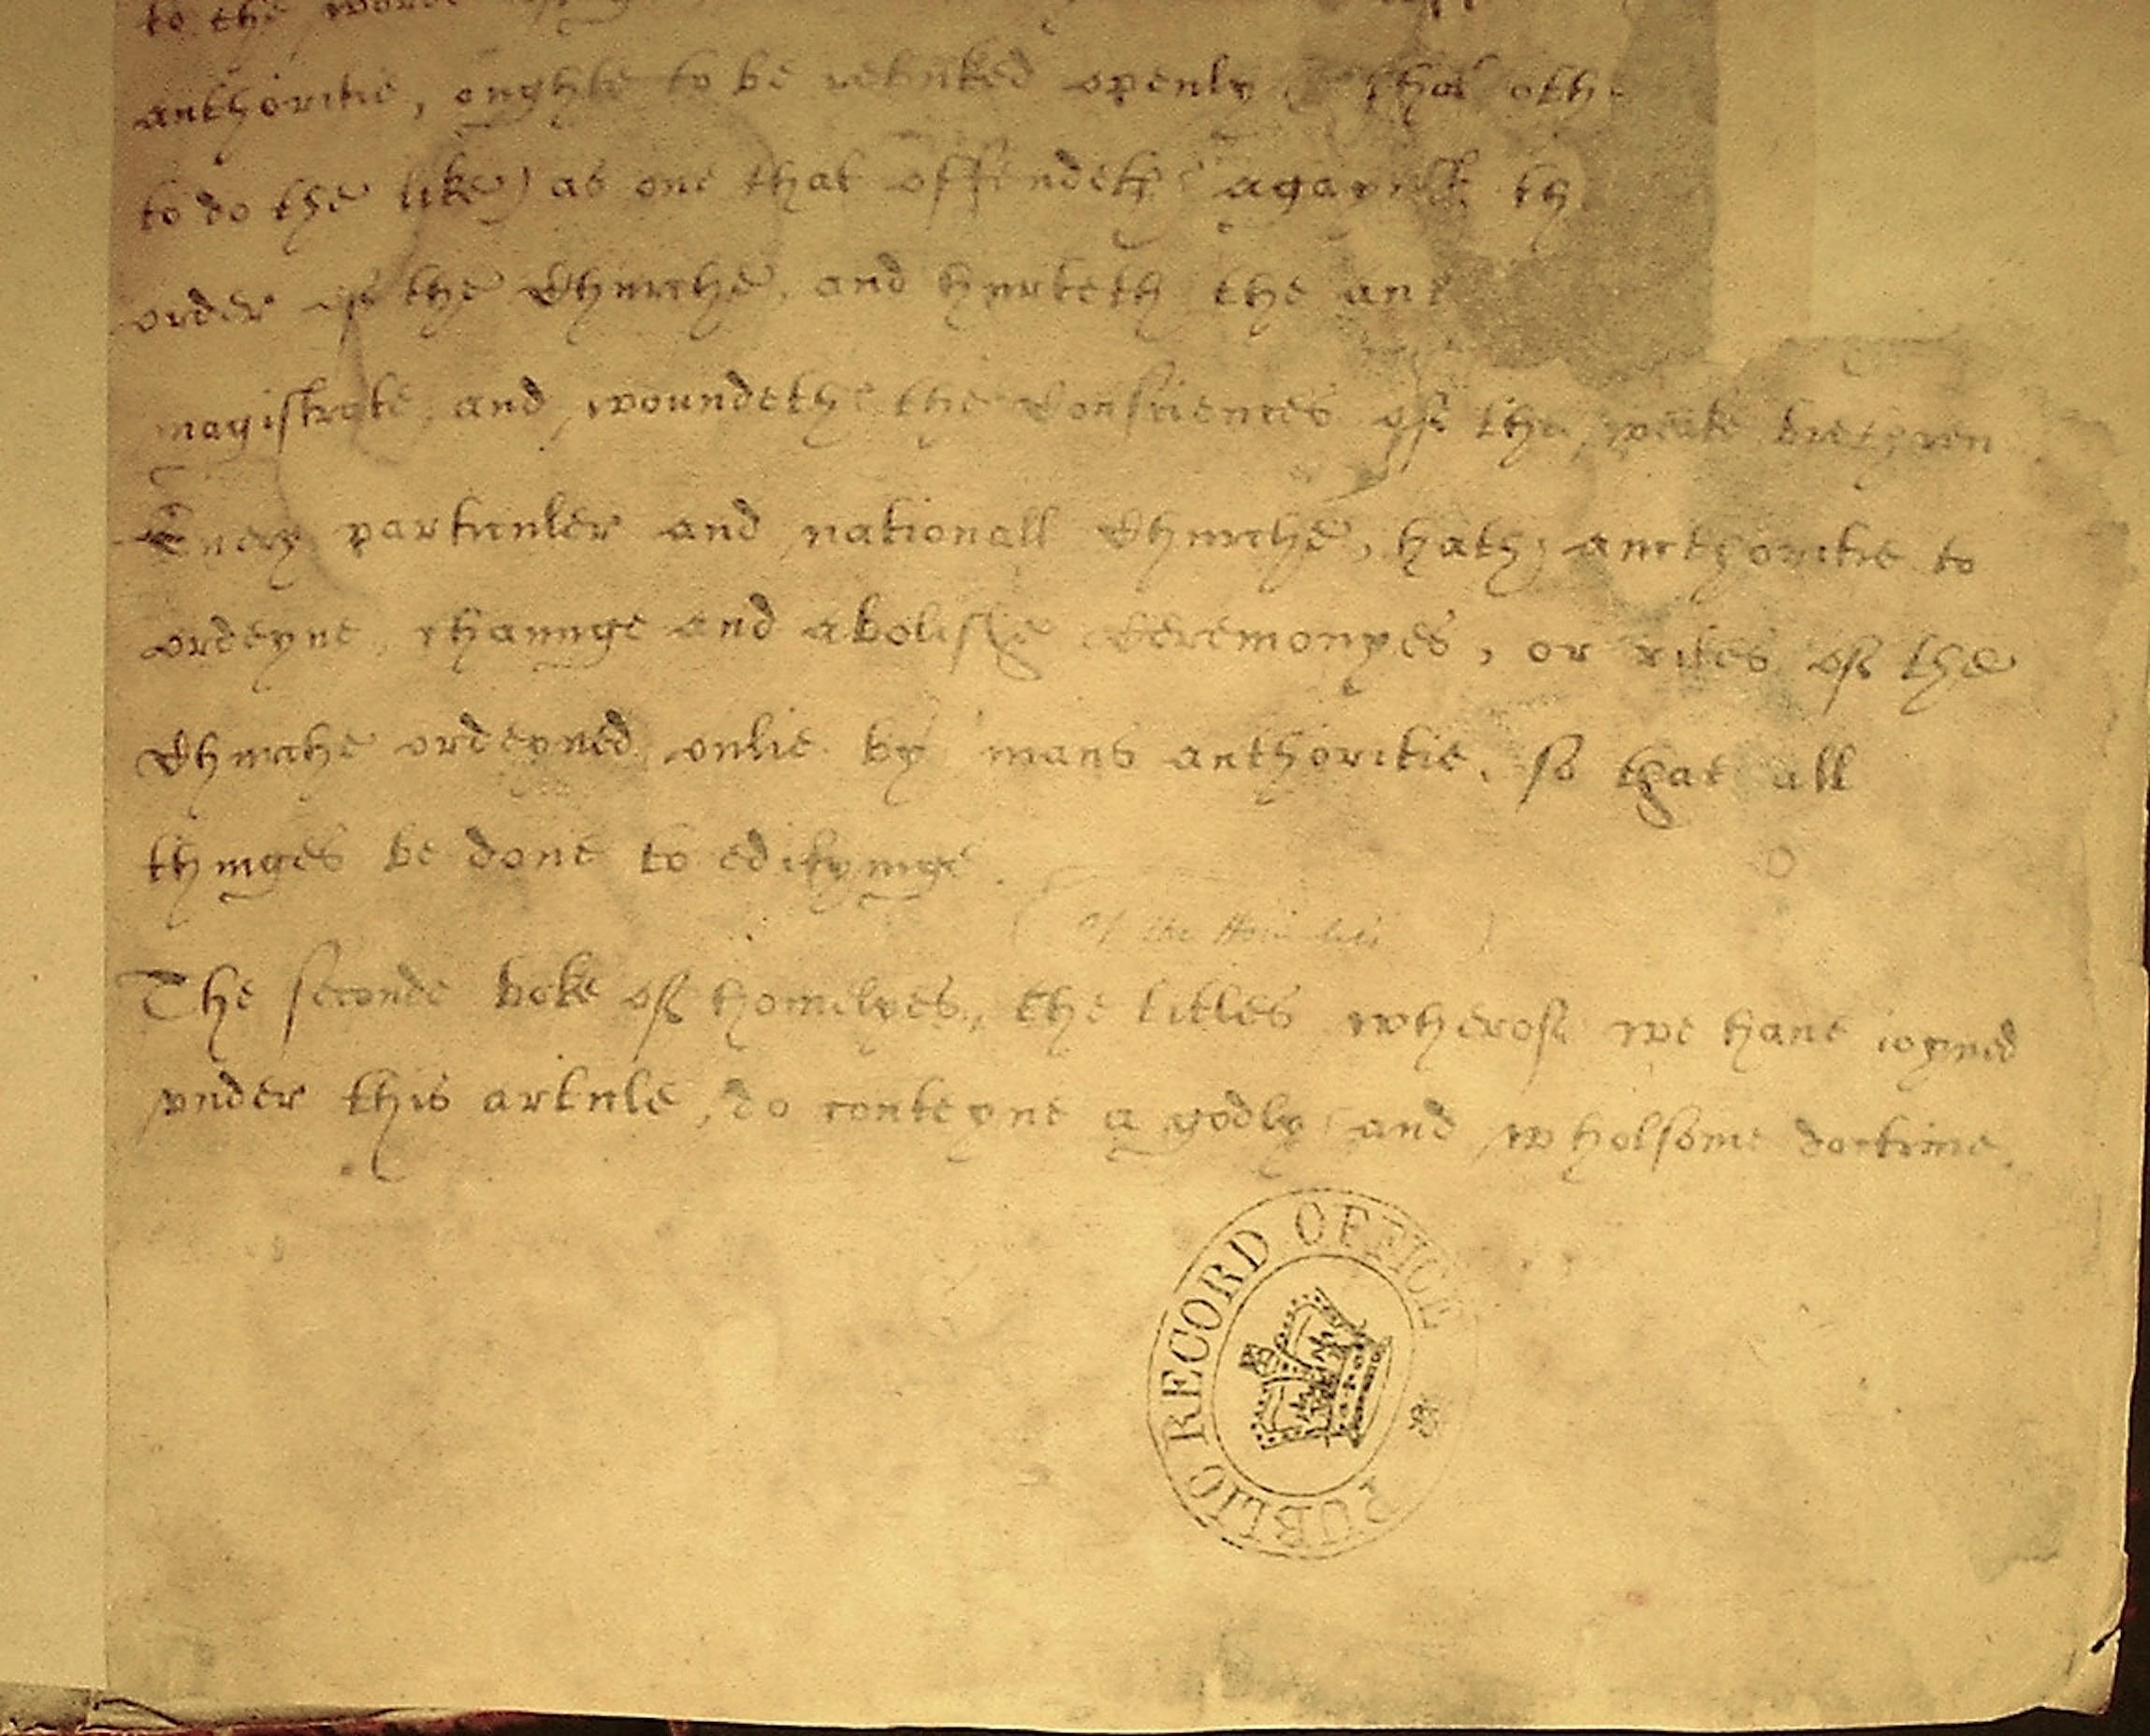 to the worde
authoritie, oughte to be rebuked openly that oth
to do the like) as one that offendeth agaynst th
order of the Churche, and hurteth the aut
magistrate, and woundethe the Consciences of the weake brethren
Euery particuler and nationall Churche, hath aucthoritie to
ordeyne, chaunge and abolishe Ceremonyes, or rites of the
Churche ordeyned onlie by mans authoritie, so that all
thinges be done to edifyinge.
(of the Homilies)
The seconde boke of homelyes, the titles wherof we haue ioyned
vnder this article, do conteyne a godly and wholsome doctrine.
PUBLIC RECORD OFFICE